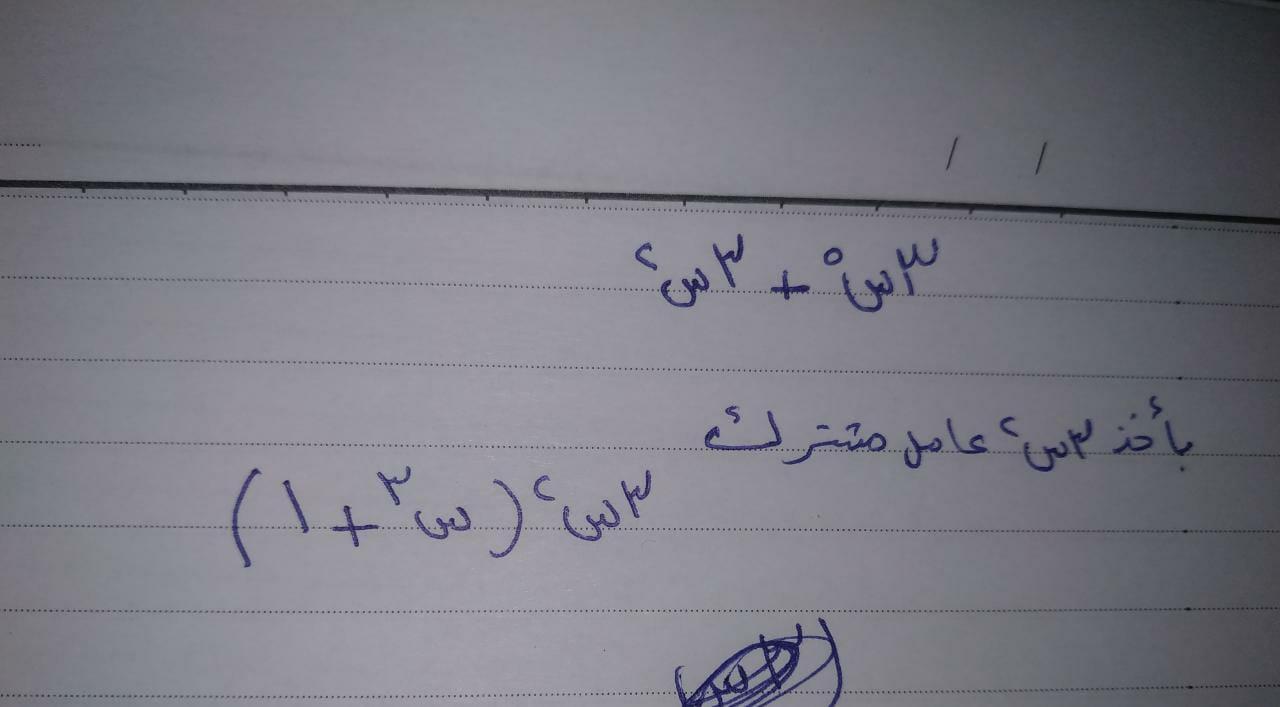 ٣س^٥ + ٣س^٢
بأخذ ٣س^٢ عامل مشترك
٣س^٢ (س^٣ + ١)